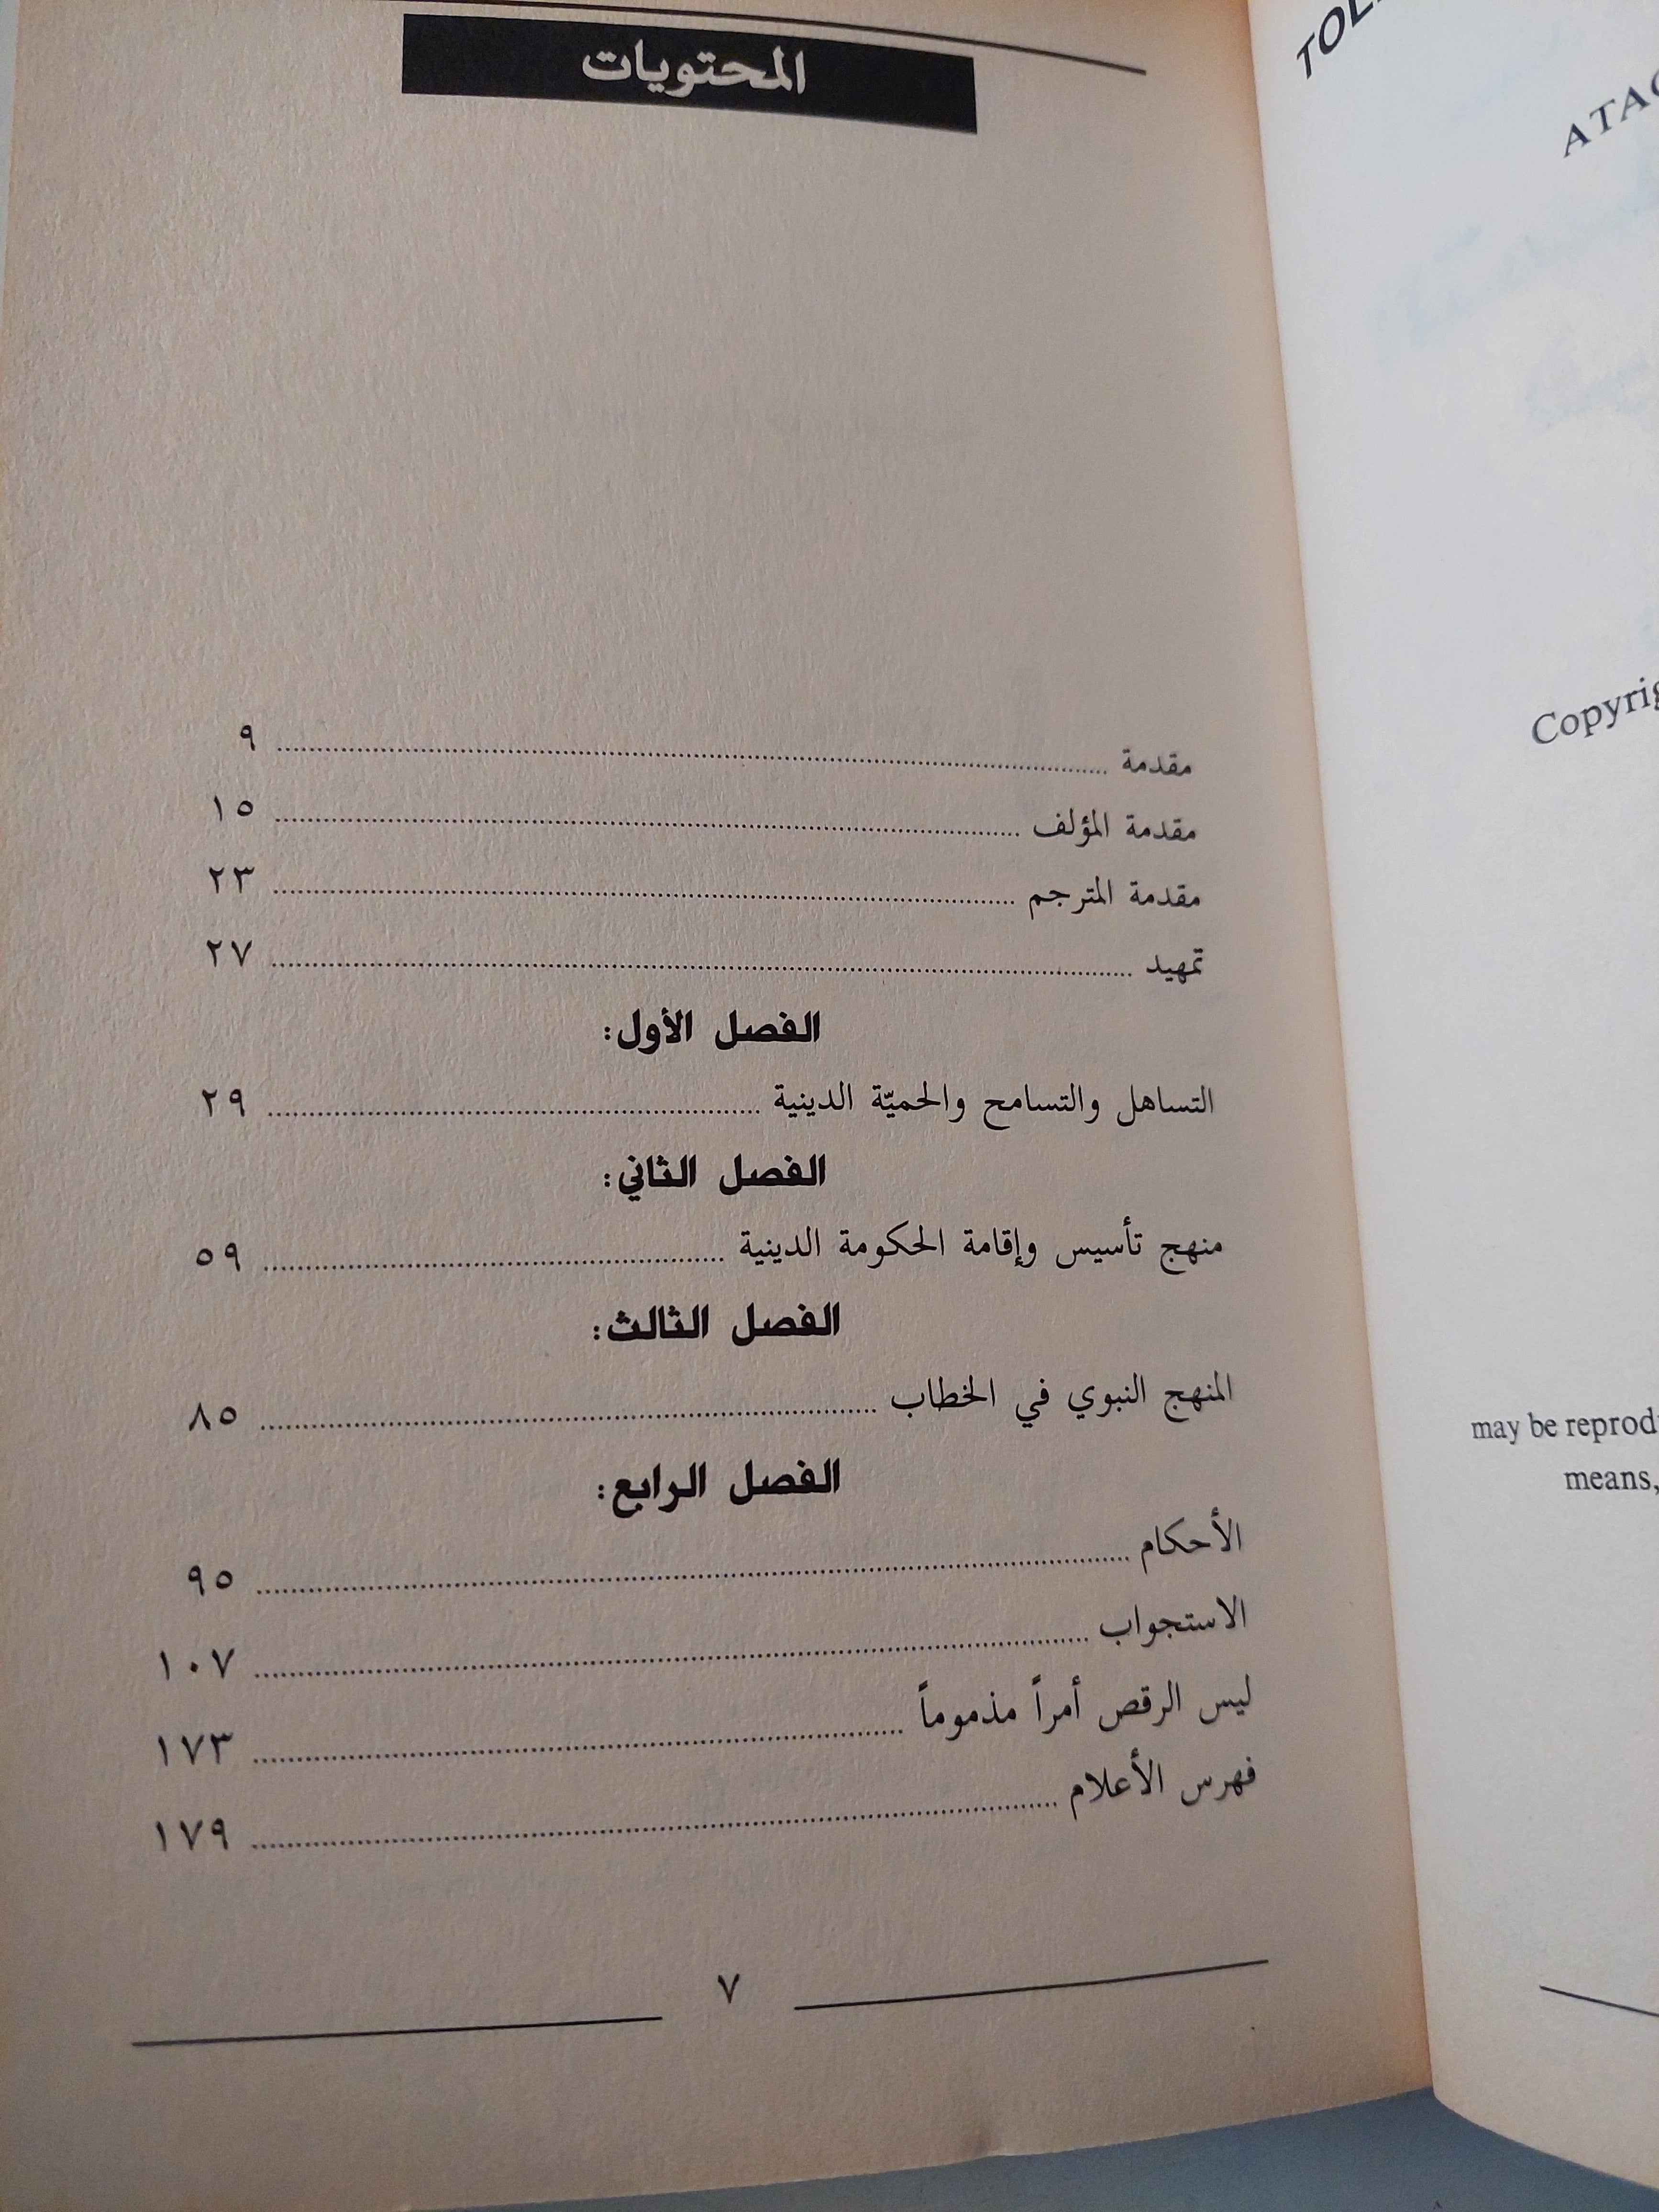 المحتويات
مقدمة ........ ٩
مقدمة المؤلف ........ ١٥
مقدمة المترجم ........ ٢٣
تمهيد ........ ٢٧
الفصل الأول:
التساهل والتسامح والحميّة الدينية ........ ٢٩
الفصل الثاني:
منهج تأسيس وإقامة الحكومة الدينية ........ ٥٩
الفصل الثالث:
المنهج النبوي في الخطاب ........ ٨٥
الفصل الرابع:
الأحكام ........ ٩٥
الاستجواب ........ ١٠٧
ليس الرقص أمراً مذموماً ........ ١٧٣
فهرس الأعلام ........ ١٧٩
٧
may be
means,